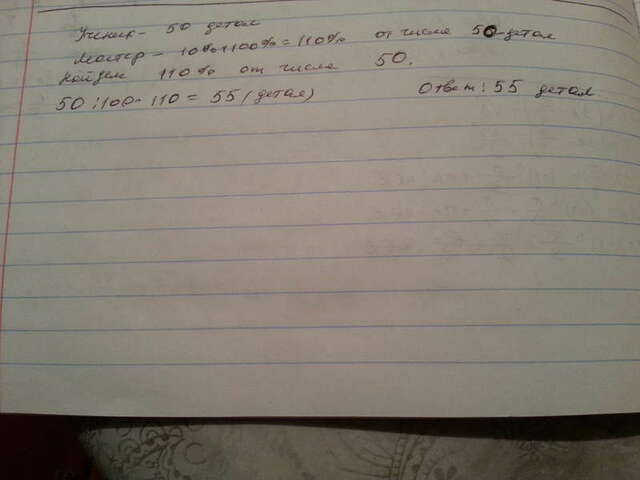 Ученик - 50 детал
Мастер - 10%+100%=110% от числа 50-детал
Найдем 110% от числа 50.
50:100·110=55(детал)
Ответ: 55 детал